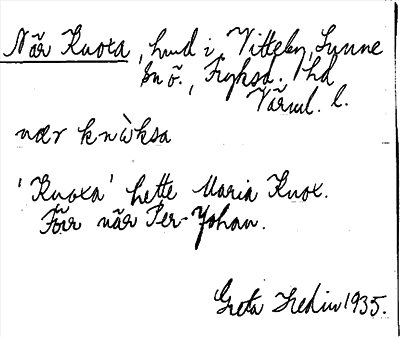 När Knoxa, hmd i Vitteby, Sunne
sn ö., Fryksd. hd
Värml. l.
nær knòksa
'Knoxa' hette Maria Knox.
Förr när Per-Johan.
Greta Hedin 1935.